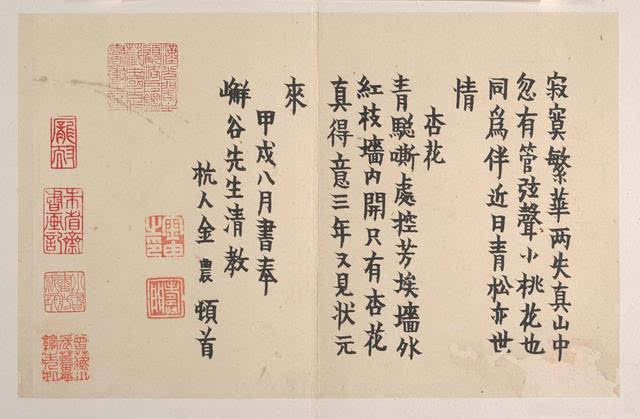 寂寞繁華两失真山中
忽有管弦聲小桃花也
同爲伴近日青松亦世
情
杏花
青驄嘶處控芳埃墻外
紅枝墻内開只有杏花
真得意三年又見状元
來
甲戌八月書奉
嶰谷先生清教
杭人金農頓首